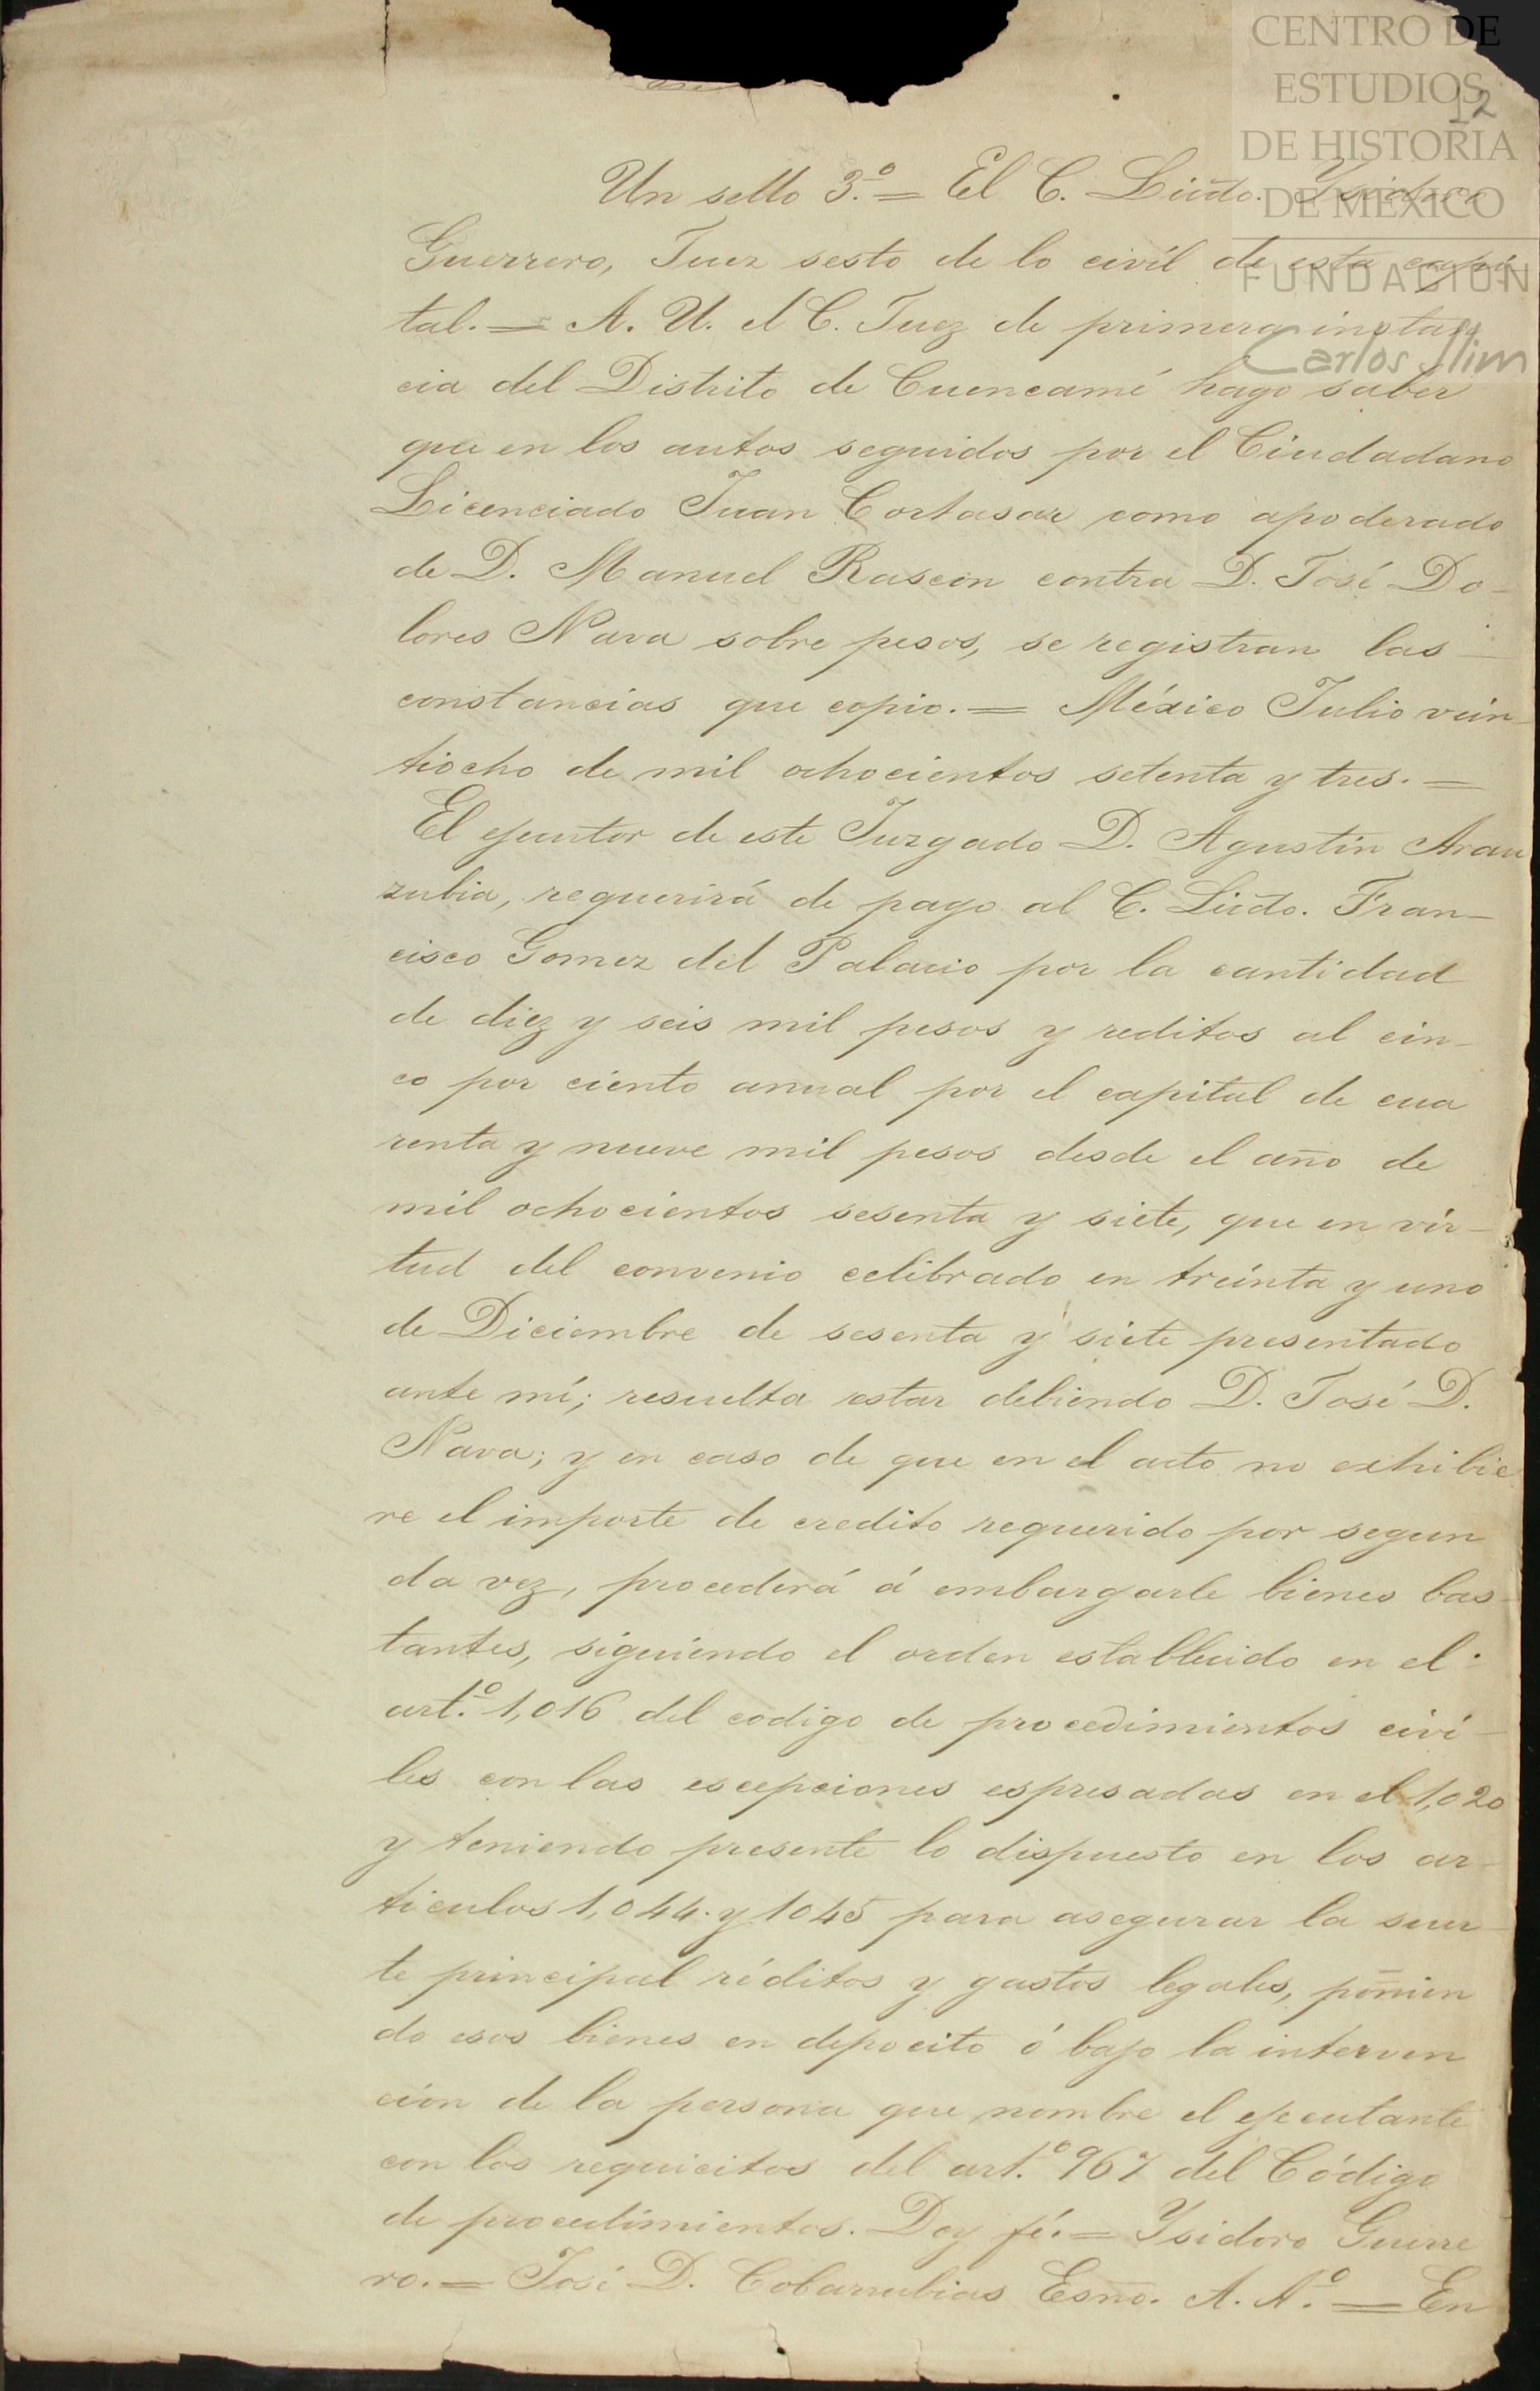 CENTRO DE
ESTUDIOS
12
DE HISTORIA
DE MÉXICO
FUNDACIÓN
Carlos Slim
Un sello 3.º = El C. Licdo. Ysidoro
Guerrero, Juez sesto de lo civíl de esta capi
tal. = A. U. el C. Juez de primera instan
cia del Distrito de Cuencamé hago saber
que en los autos seguidos por el Ciudadano
Licenciado Juan Cortasar como apoderado
de D. Manuel Rascon contra D. José Do-
lores Nava sobre pesos, se registran las
constancias que copio. = México Julio vein-
tiocho de mil ochocientos setenta y tres. =
El ejecutor de este Juzgado D. Agustin Aran
zubia, requerirá de pago al C. Licdo. Fran-
cisco Gomez del Palacio por la cantidad
de diez y seis mil pesos y reditos al cin-
co por ciento anual por el capital de cua
renta y nueve mil pesos desde el año de
mil ochocientos sesenta y siete, que en vir-
tud del convenio celibrado en treinta y uno
de Diciembre de sesenta y siete presentado
ante mí; resulta estar debiendo D. José D.
Nava; y en caso de que en el acto no exhibie
re el importe de credito requerido por segun
da vez, procederá á embargarle bienes bas-
tantes, siguiendo el orden establecido en el
art.º 1,016 del codigo de procedimientos civi-
les con las escepciones espresadas en el 1,020
y teniendo presente lo dispuesto en los ar-
ticulos 1,044. y 1045 para asegurar la suer-
te principal réditos y gastos legales, ponien
do esos bienes en depocito ó bajo la interven
cion de la persona que nombre el ejecutante
con los requicitos del art.º 967 del Código
de procedimientos. Doy fé. = Ysidoro Guerre
ro. = José D. Cobarrubias Esño. A. A.º = En